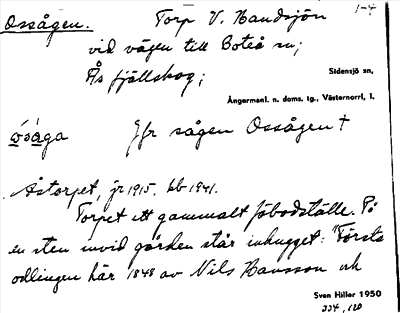 Ossågen. Torp V. Handsjön 1-4
vid vägen till Boteå sn;
Ås fjällskog;
Sidensjö sn,
Ångermanl. n. doms. tg., Västernorrl. l.
òsàga Jfr sågen Ossågen †
Åstorpet, jr 1915, kb 1941.
Torpet ett gammalt fäbodställe. På
en sten invid gården står inhugget: "Första
odlingen här 1848 av Nils Hansson och
Sven Hiller 1950
224, 120